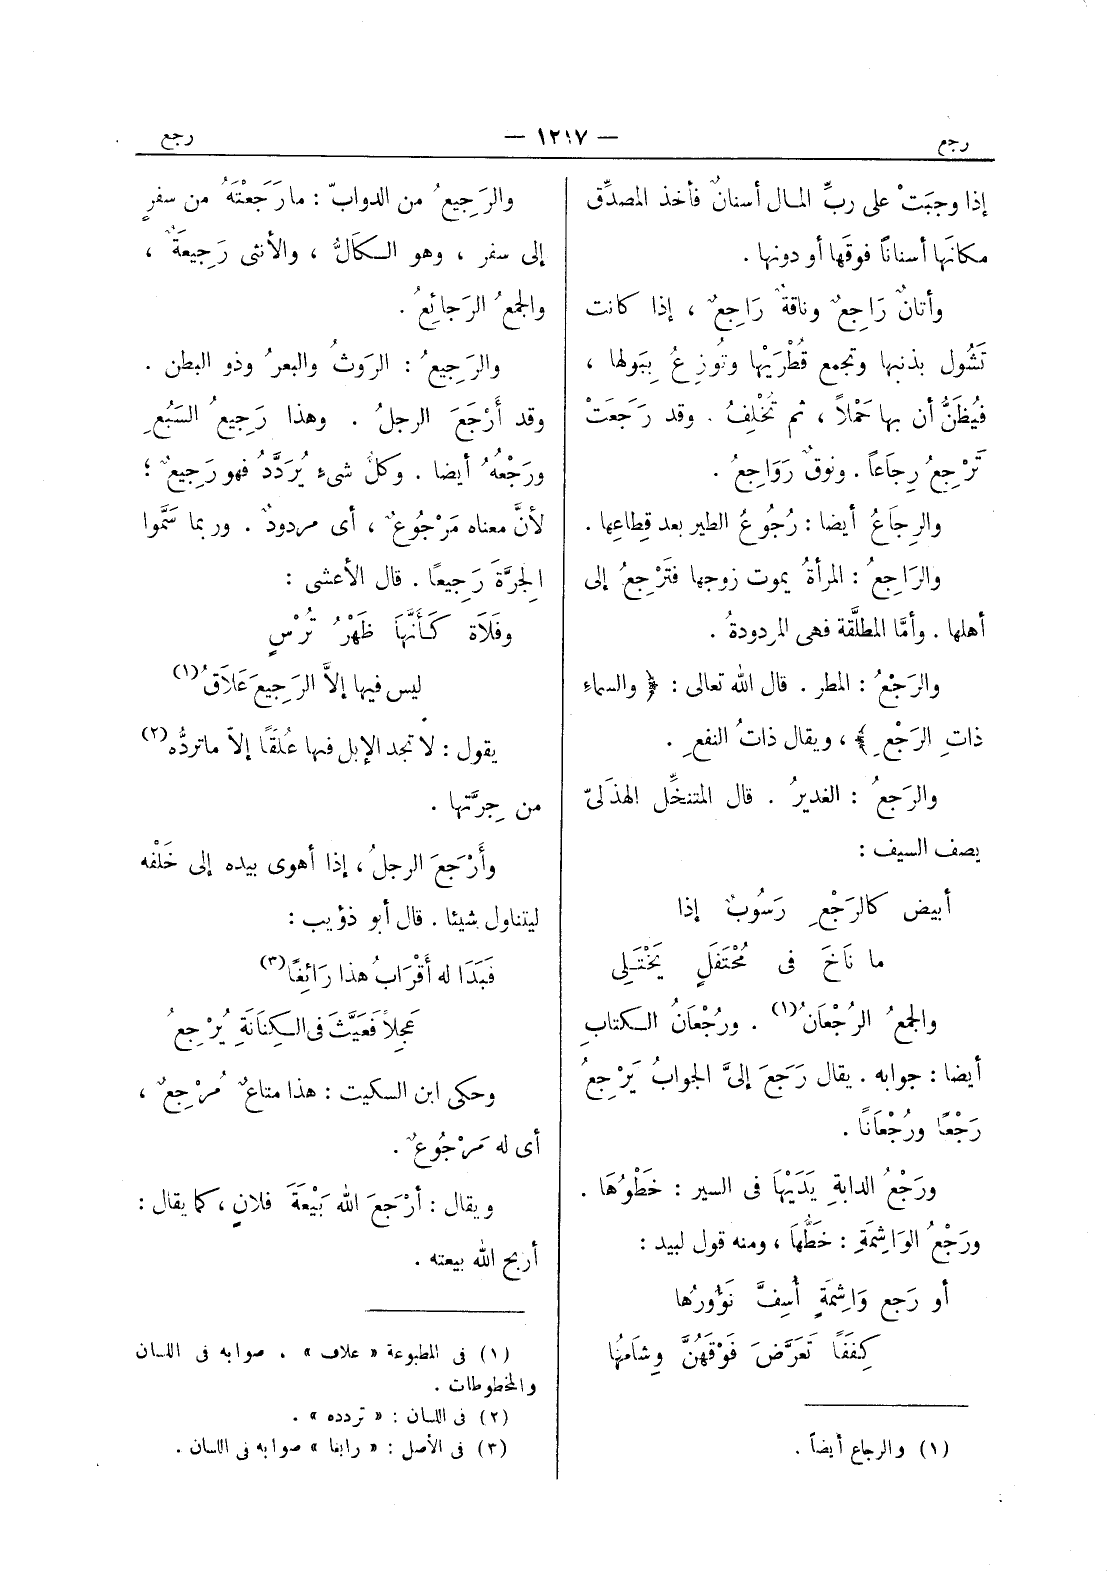 رجع
— ١٢١٧ —
رجع
إذا وجبَتْ على ربِّ المـال أسنانٌ فأخذ المصدِّق
مكانَها أسناناً فوقَها أو دونها .
وأتانٌ رَاجِعٌ وناقةٌ رَاجِعٌ ، إذا كانت
تَشُول بذنبها وتجمع قُطْرَيْها وتُوزِعُ بِبَولها ،
فيُظَنُّ أن بها حَمْلاً ، ثم تُخْلِفُ . وقد رَجَعَتْ
تَرْجِعُ رِجَاعاً . ونوقٌ رَوَاجِعُ .
والرِجَاعُ أيضا : رُجُوعُ الطير بعد قِطاعِها .
والرَاجِعُ : المرأةُ يموت زوجها فتَرْجِعُ إلى
أهلها . وأمَّا المطلَّقة فهى المردودةُ .
والرَجْعُ : المطر . قال الله تعالى : ﴿ والسماءِ
ذاتِ الرَجْعِ ﴾ ، ويقال ذاتُ النفعِ .
والرَجعُ : الغديرُ . قال المتنخِّل الهذَلىّ
يصف السيف :
أبيض كالرَجْعِ رَسُوبٌ إذا
ما ثَاخَ فى مُحْتَفَلٍ يَخْتَـلِى
والجمعُ الرُجْعَانُ(١) . ورُجْعَانُ الـكتابِ
أيضا : جوابه . يقال رَجَعَ إلىَّ الجوابُ يَرْجِعُ
رَجْعًا ورُجْعَانًا .
ورَجْعُ الدابةِ يَدَيْهَا فى السير : خَطْوُهَا .
ورَجْعُ الوَاشِمَةِ : خَطُّهَا ، ومنه قول لبيد :
أو رَجع وَاشِمَةٍ أُسِفَّ نَؤُورُها
كِفَفًا تَعَرَّضَ فَوْقَهُنَّ وِشَامُها
(١) والرجاع أيضاً .
والرَجِيعُ من الدوابّ : ما رَجَعْتَهُ من سفرٍ
إلى سفر ، وهو الـكَالُّ ، والأنثى رَجِيعَةٌ ،
والجمعُ الرَجائِعُ .
والرَجِيعُ : الرَوثُ والبعرُ وذو البطن .
وقد أَرْجَعَ الرجلُ . وهذا رَجِيعُ السَبُعِ
ورَجْعُهُ أيضا . وكلُّ شىء يُرَدَّدُ فهو رَجِيعٌ ؛
لأنَّ معناه مَرْجُوعٌ ، أى مردودٌ . وربما سَمَّوا
الجِرَّةَ رَجِيعًا . قال الأعشى :
وفَلَاة كَـأَنَّهَا ظَهْرُ تُرْسٍ
ليس فيها إلاَّ الرَجِيعَ عَلاَقُ(١)
يقول : لا تجد الإبل فيها عُلَقًا إلاّ ماتردُّه(٢)
من جِرَّتها .
وأَرْجَعَ الرجلُ ، إذا أهوى بيده إلى خَلْفه
ليتناول شيئا . قال أبو ذؤيب :
فَبَدَا له أَقْرَابُ هذا رَائِغًا(٣)
عَجِلاً فَعَيَّثَ فى الـكِنَانَةِ يُرْجِعُ
وحكى ابن السكيت : هذا متاعٌ مُرْجِعٌ ،
أى له مَرْجُوعٌ .
ويقال : أَرْجَعَ الله بَيْعَةَ فلانٍ ، كما يقال :
أربح الله بيعته .
(١) فى المطبوعة « علاف » . صوابه فى اللسان
والمخطوطات .
(٢) فى اللسان : « تردده » .
(٣) فى الأصل : « رابغا » صوابه فى اللسان .